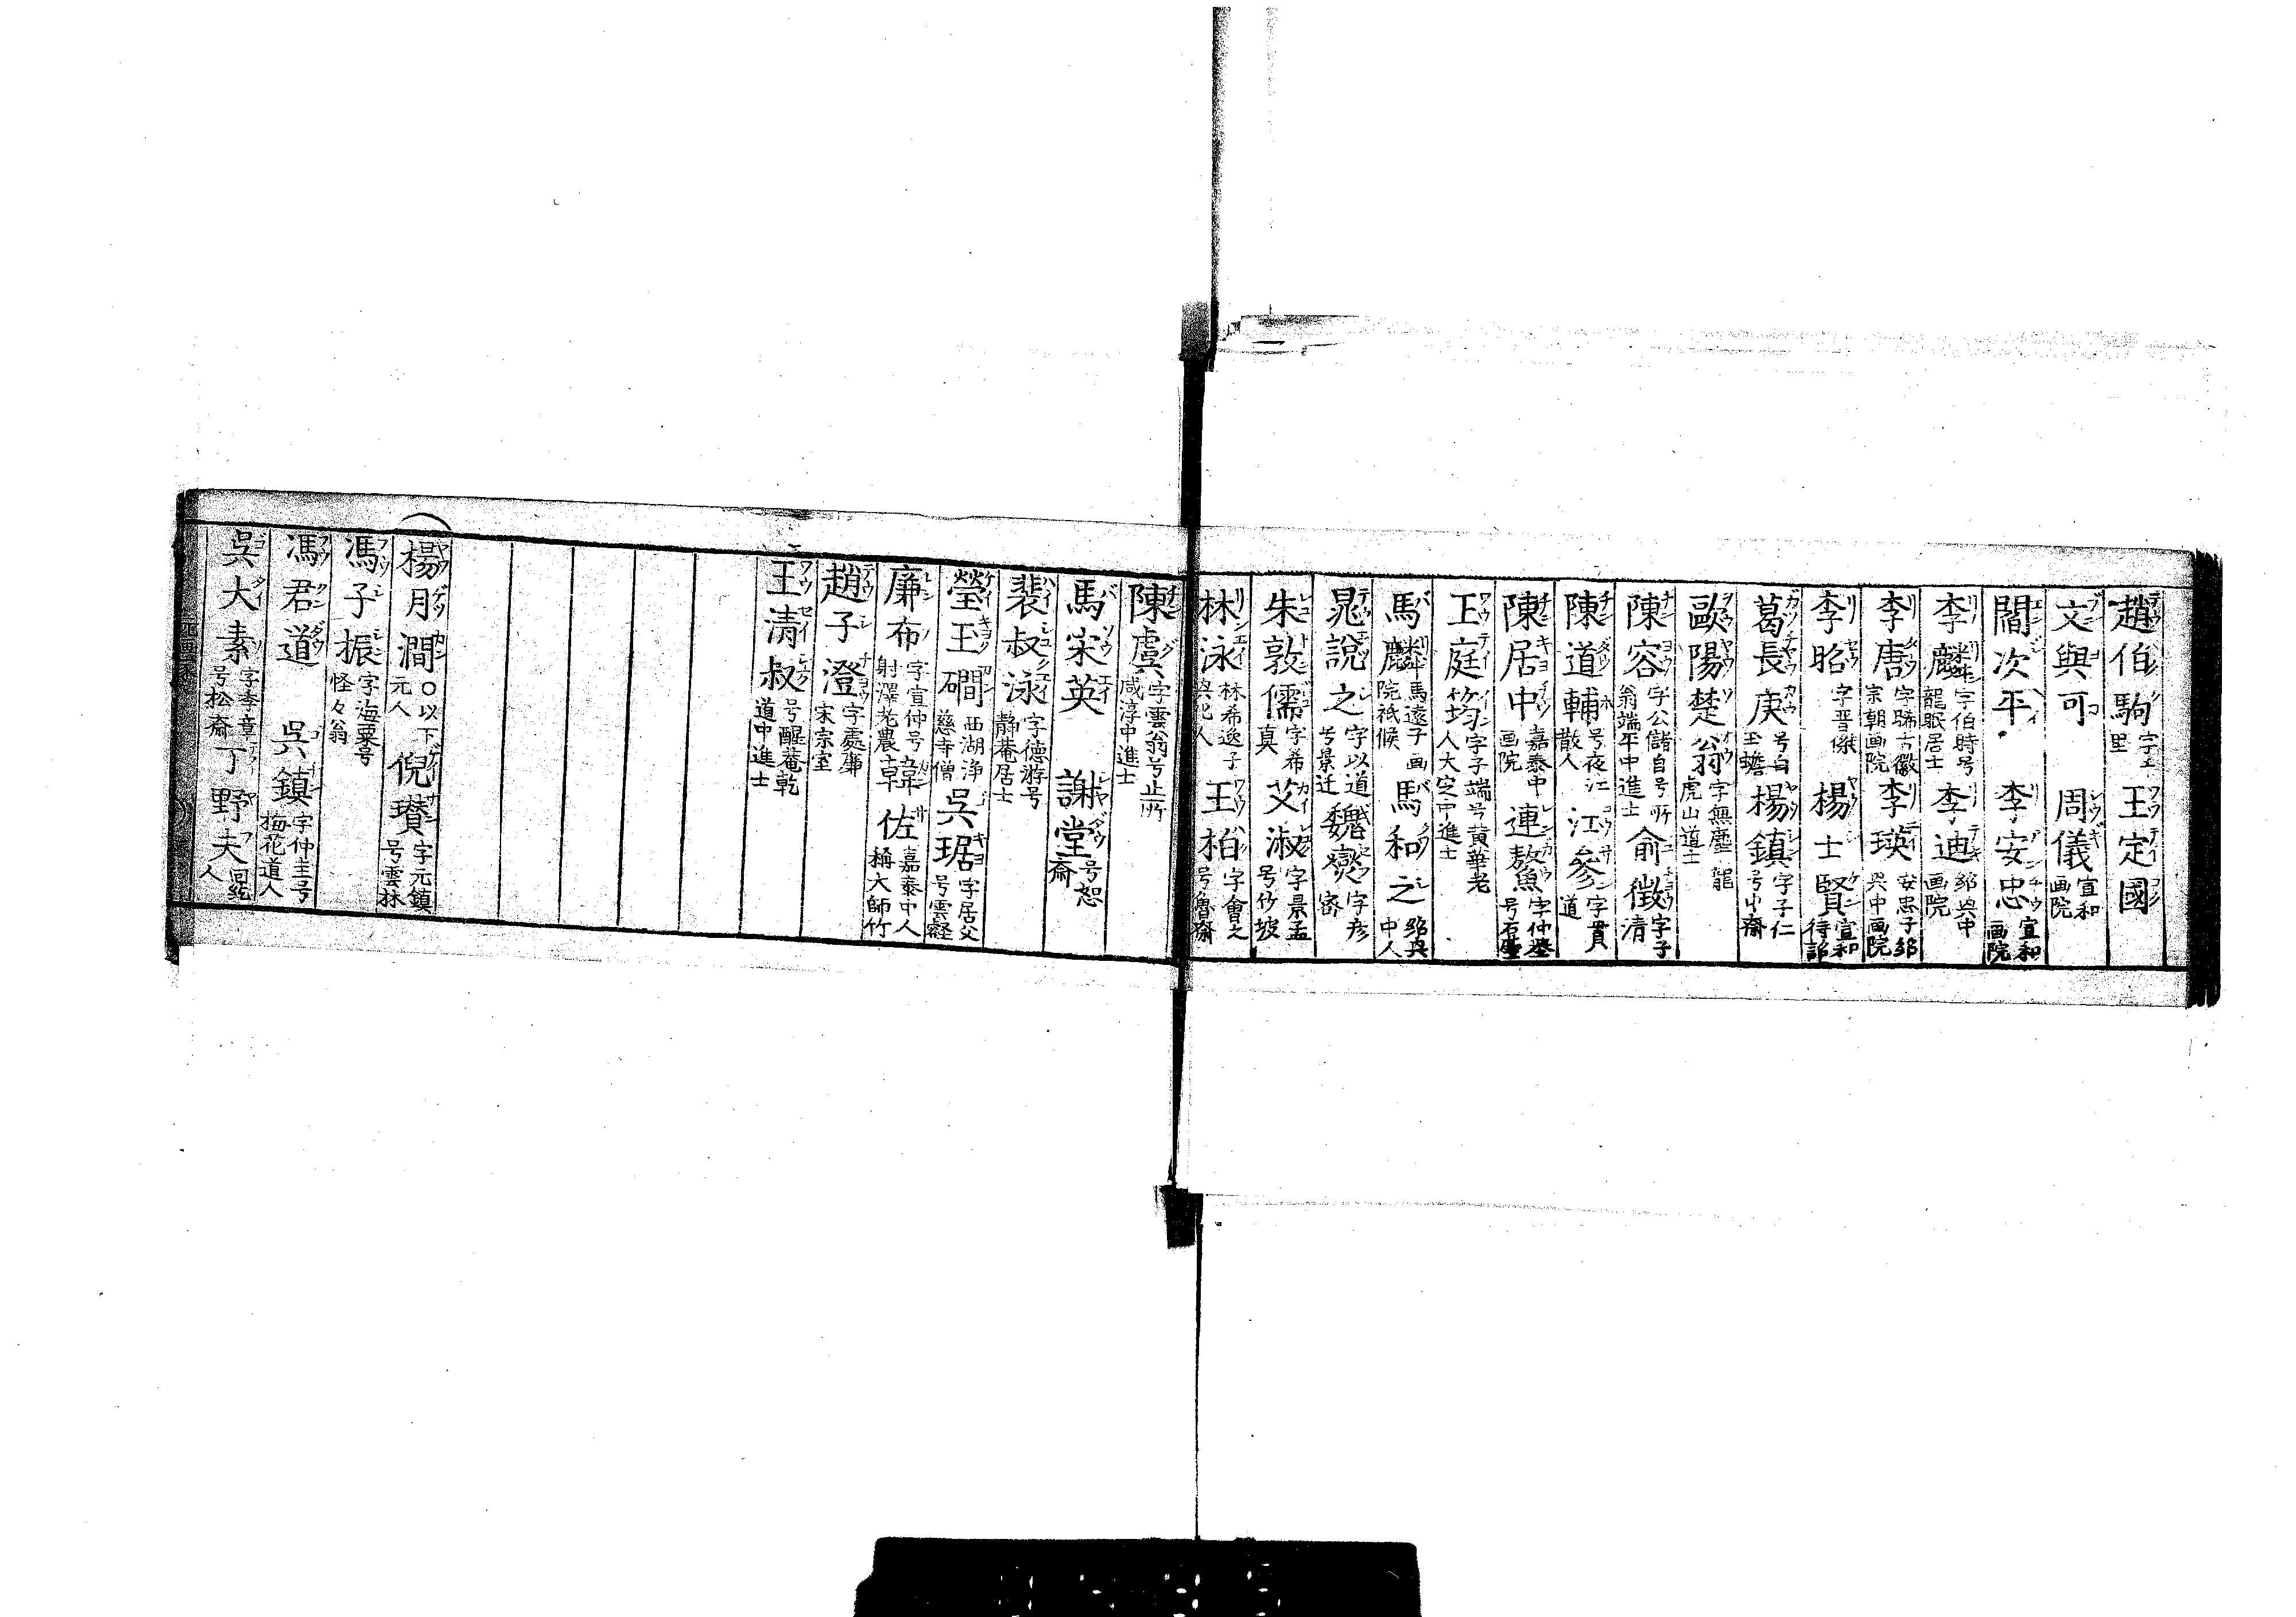 趙伯駒 字千里 王定國
文與可 周儀 宣和画院
閻次平 李安忠 宣和画院
李麟 字伯時号龍眠居士 李迪 紹興中画院
李唐 字晞古徽宗朝画院 李瑛 安忠子紹興中画院
李昭 字晋傑 楊士賢 宣和待詔
葛長庚 号白玉蟾 楊鎮 字子仁号中齋
歐陽楚翁 字無塵龍虎山道士
陳容 字公儲自号所翁端平中進士 俞徴 字子清
陳道輔 号夜江散人 江參 字貫道
陳居中 嘉泰中画院 連鰲 字仲鰲号石
王庭筠 字子端号黄華老人大定中進士
馬麟 馬遠子画院祗候 馬和之 紹興中人
晁說之 字以道号景迂 魏燮 字彦
朱敦儒 字希真 艾淑 字景孟号竹坡
林泳 林希逸子興化人 王柏 字會之号魯齋
陳虞 字雲翁号止所咸淳中進士
馬宋英 謝堂 号恕齋
裴叔泳 字德游号静菴居士
瑩玉磵 西湖浄慈寺僧 吳琚 字居父号雲壑
廉布 字宣仲号射澤老農 韓佐 嘉泰中人稱大師竹
趙子澄 字處廉宋宗室
王清叔 号醒菴乾道中進士
楊月澗 ○以下元人 倪瓚 字元鎮号雲林
馮子振 字海粟号怪々翁
馮君道 吳鎮 字仲圭号梅花道人
吳大素 字季章号松齋 丁野夫 回紇人